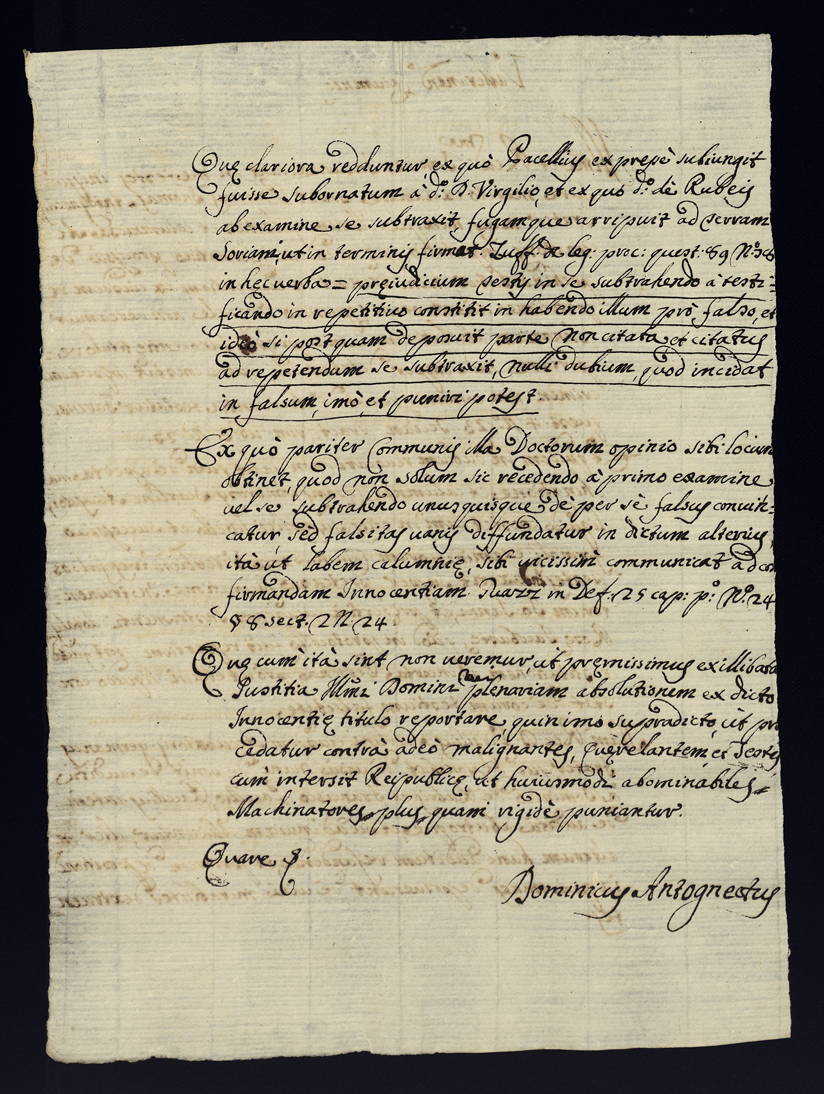 Quę clariora redduntur, ex quò Pacellius expresè subiungit
fuisse subornatum à d.º D. Virgilio, et ex quo d.º de Rubeis
ab examine se subtraxit, fugamque arripuit ad Terram
Soriani, ut in terminis firmat. Zuff. de leg: proc: quest. 89 Nº
in hec verba = pręiudicium testis in se subtrahendo à testi=
ficando in repetitivo constitit in habendo illum prò falso, et
ideò si postquam deposuit parte non citata et citatus
ad repetendum se subtraxit, nulli dubium, quod incidat
in falsum, imò, et puniri potest.
Ex quò pariter communis illa Doctorum opinio sibi locum
obtinet, quod non solum sic recedendo à primo examine
vel se subtrahendo unusquisque dè per sè falsus convin=
catur, sed falsitas unius diffundatur in dictum alterius,
ità ut labem calumnię, sibi vicissim communicat ad con
firmandam Innocentiam Guazz in Def. 25 cap: pº Nº 24
§ 8 sect. 2 N. 24.
Quę cum ità sint non veremur, ut pręmissimus ex illibata
Iustitia Illmi Domini plenariam absolutionem ex dicto
Innocentię titulo reportare quinimo supradicto, ùt pro
cedatur contrà adeò malignantes, Quęrelantem, et Testes,
cum intersit Reipublicę, ut huiusmodi abominabiles=
Machinatores plus quam rigidè puniantur.
Quare &.
Dominicus Antognectus